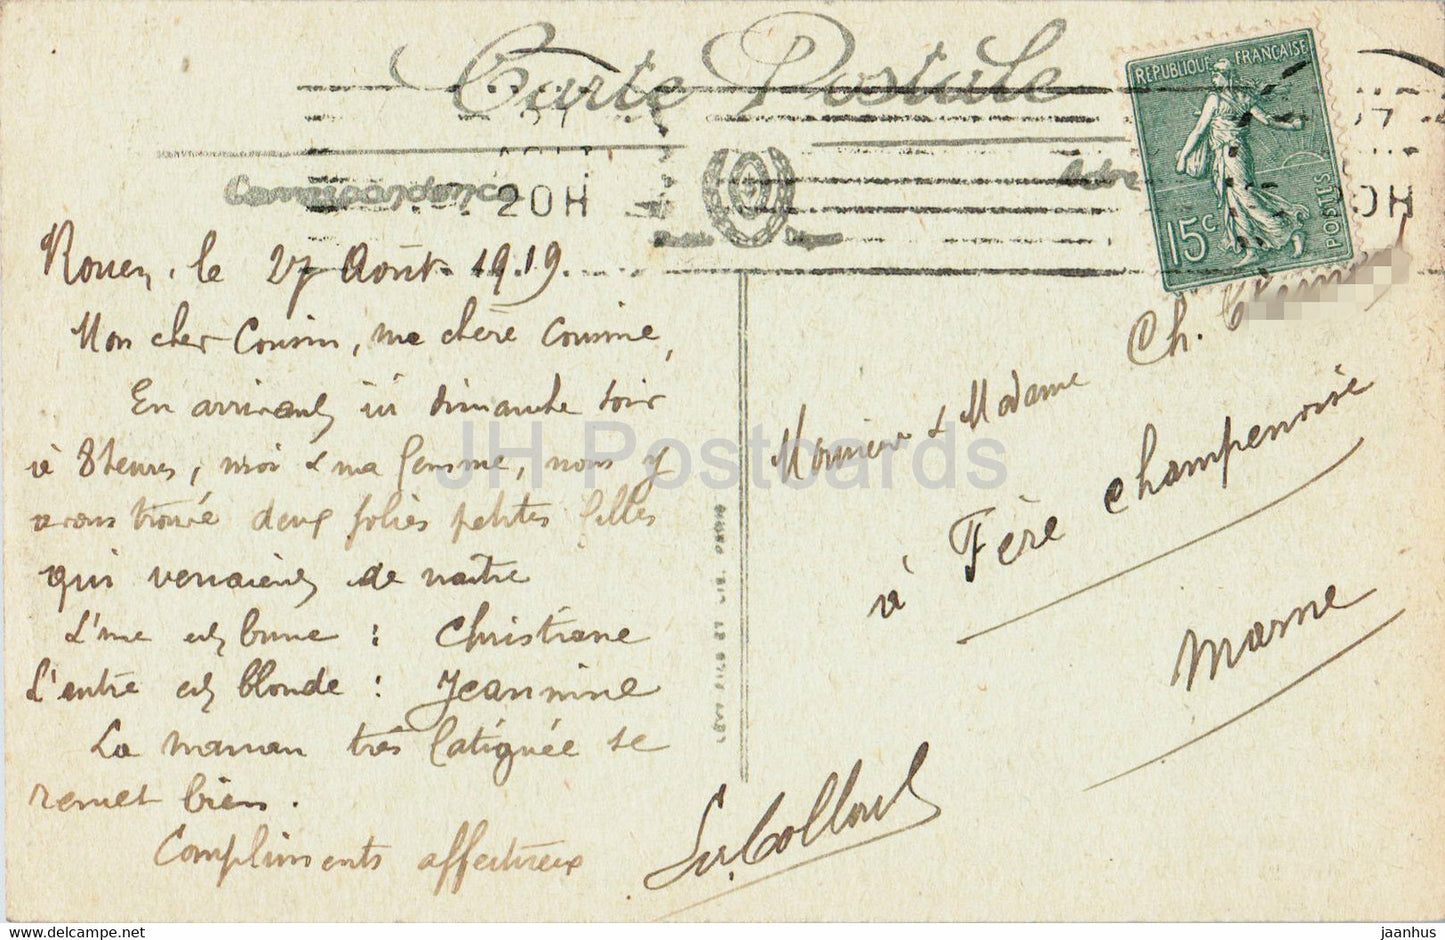 Carte Postale
Correspondance
20H
RÉPUBLIQUE FRANÇAISE
POSTES
15c
Rouen, le 27 Août 1919.
Mon cher Cousin, ma chère Cousine,
En arrivant ici dimanche soir
à 8 heures, moi & ma femme, nous y
avons trouvé deux jolies petites filles
qui venaient de naitre
L'une est brune : Christiane
L'autre est blonde : Jeannine
La maman très fatiguée se
remet bien.
Compliments affectueux
Monsieur & Madame Ch.
à Fère champenoise
Marne
JH Postcards
jaanhus